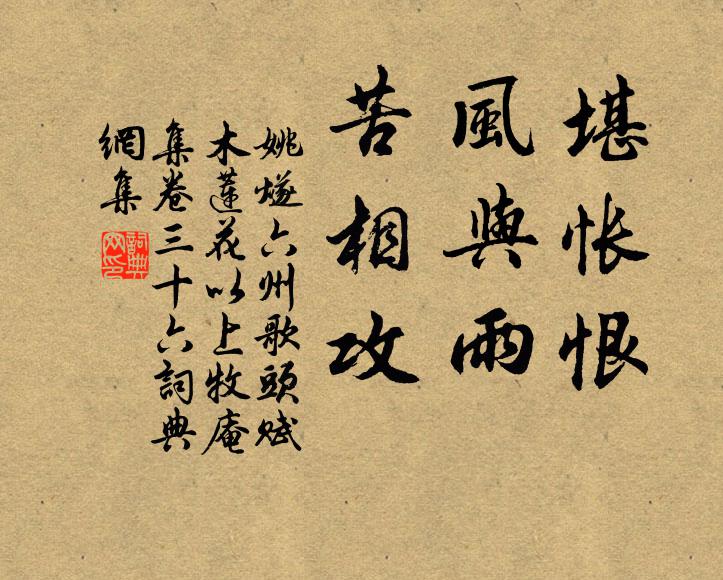 堪怅恨
風與雨
苦相攻
姚燧六州歌頭赋
木蓮花以上牧庵
集卷三十六詞典
網集
詞典
网印